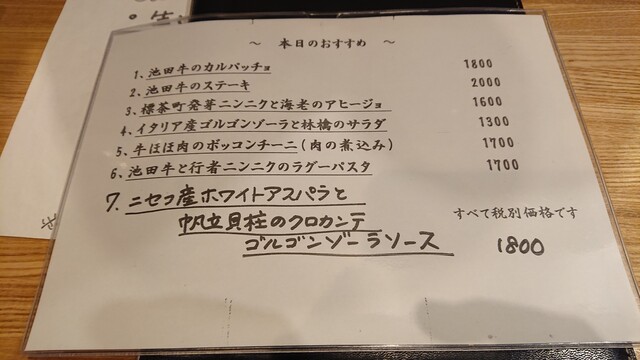 ～ 本日のおすすめ ～
1、池田牛のカルパッチョ 1800
2、池田牛のステーキ 2000
3、標茶町発芽ニンニクと海老のアヒージョ 1600
4、イタリア産ゴルゴンゾーラと林檎のサラダ 1300
5、牛ほほ肉のボッコンチーニ(肉の煮込み) 1700
6、池田牛と行者ニンニクのラグーパスタ 1700
7. ニセコ産ホワイトアスパラと
帆立貝柱のクロカンテ
すべて税別価格です
ゴルゴンゾーラソース 1800